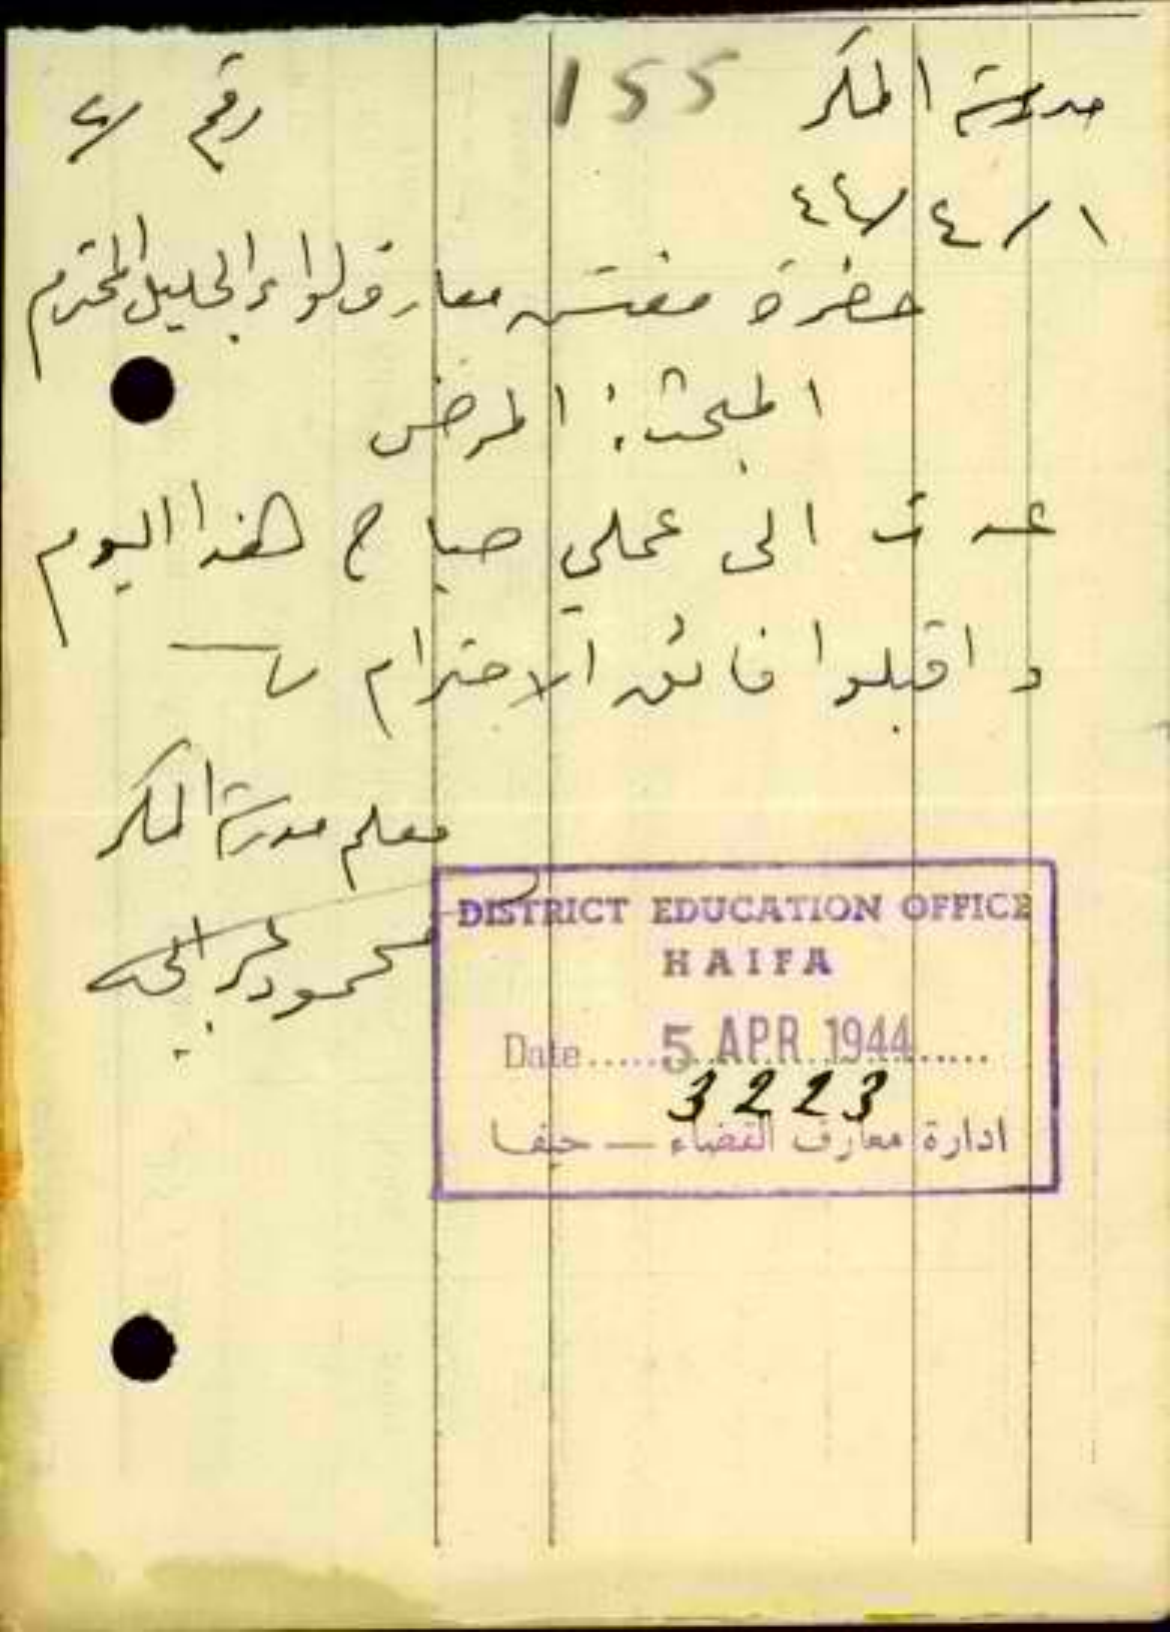 مدرسة المكر 155 رقم
١ / ٤ / ٤٤
حضرة مفتش معارف لواء الجليل المحترم
المبحث: المرض
عدت الى عملي صباح هذا اليوم
و اقبلوا فائق الاحترام
معلم مدرسة المكر
محمود
DISTRICT EDUCATION OFFICE
HAIFA
Date..... 5 APR 1944 .....
3223
ادارة معارف القضاء — حيفا